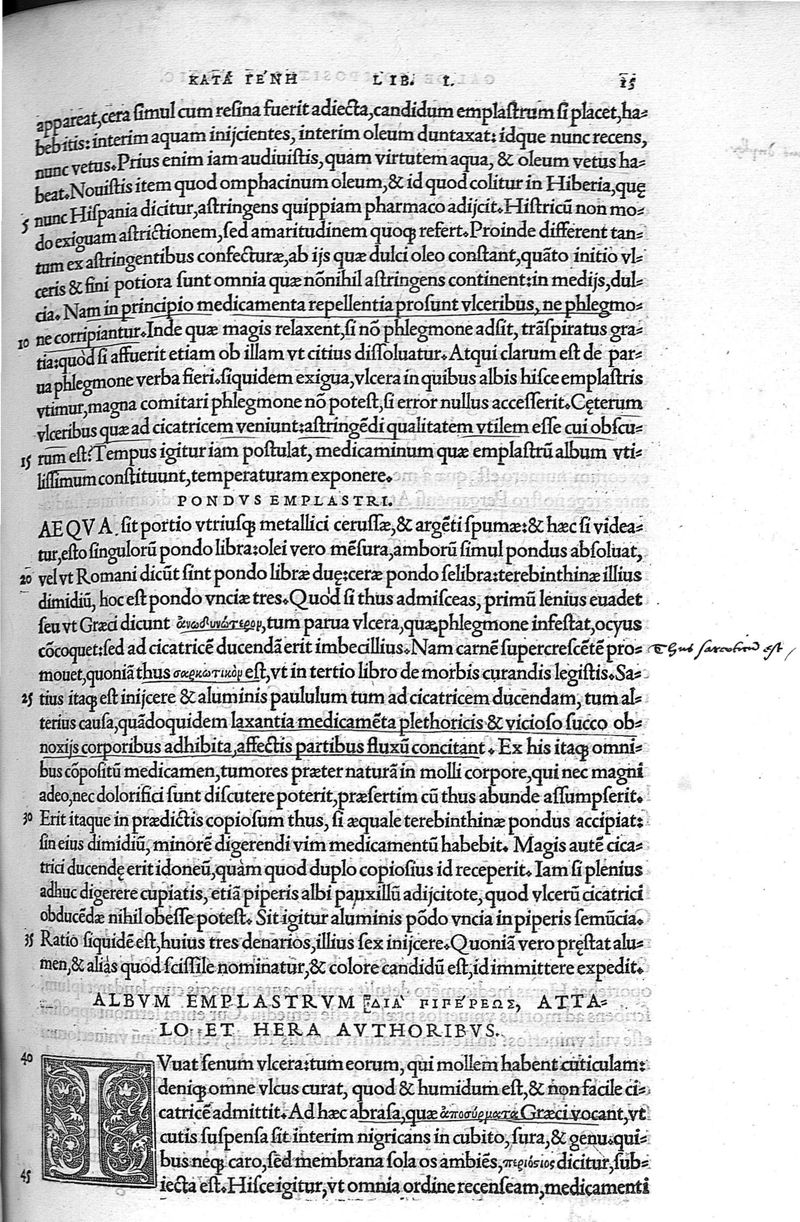 ΚΑΤΑ ΓΕΝΗ LIB. I. 15
appareat,cera simul cum resina fuerit adiecta,candidum emplastrum si placet,ha-
bebitis: interim aquam inijcientes, interim oleum duntaxat: idque nunc recens,
nunc vetus. Prius enim iam audiuistis, quam virtutem aqua, & oleum vetus ha-
beat. Nouistis item quod omphacinum oleum,& id quod colitur in Hiberia,quę
5 nunc Hispania dicitur,astringens quippiam pharmaco adijcit. Histricũ non mo-
do exiguam astrictionem, sed amaritudinem quoq; refert. Proinde different tan-
tum ex astringentibus confecturæ,ab ijs quæ dulci oleo constant,quãto initio vl-
ceris & fini potiora sunt omnia quæ nõnihil astringens continent: in medijs,dul-
cia. Nam in principio medicamenta repellentia prosunt vlceribus, ne phlegmo-
10 ne corripiantur. Inde quæ magis relaxent,si nõ phlegmone adsit, trãspiratus gra-
tia: quòd si affuerit etiam ob illam vt citius dissoluatur. Atqui clarum est de par-
ua phlegmone verba fieri. siquidem exigua,vlcera in quibus albis hisce emplastris
vtimur,magna comitari phlegmone nõ potest,si error nullus accesserit. Cęterum
vlceribus quæ ad cicatricem veniunt: astringẽdi qualitatem vtilem esse cui obscu-
15 rum est? Tempus igitur iam postulat, medicaminum quæ emplastrũ album vti-
lissimum constituunt, temperaturam exponere.
PONDVS EMPLASTRI.
AEQVA sit portio vtriusq; metallici cerussæ,& argẽti spumæ: & hæc si videa-
tur,esto singulorũ pondo libra: olei vero mẽsura,amborũ simul pondus absoluat,
20 vel vt Romani dicũt sint pondo libræ duę: ceræ pondo selibra: terebinthinæ illius
dimidiũ, hoc est pondo vnciæ tres. Quòd si thus admisceas, primũ lenius euadet
seu vt Græci dicunt ἀνωδυνώτερομ, tum parua vlcera, quæ phlegmone infestat, ocyus
cõcoquet: sed ad cicatricẽ ducendã erit imbecillius. Nam carnẽ supercrescẽtẽ pro-
Thus sarcoticũ est
mouet,quoniã thus σαρκωτικὸμ est, vt in tertio libro de morbis curandis legistis. Sa-
25 tius itaq; est inijcere & aluminis paululum tum ad cicatricem ducendam, tum al-
terius causa, quãdoquidem laxantia medicamẽta plethoricis & vicioso succo ob-
noxijs corporibus adhibita, affectis partibus fluxũ concitant. Ex his itaq; omni-
bus cõpositũ medicamen,tumores præter naturã in molli corpore,qui nec magni
adeo,nec dolorifici sunt discutere poterit,præsertim cũ thus abunde assumpserit.
30 Erit itaque in prædictis copiosum thus, si æquale terebinthinæ pondus accipiat:
sin eius dimidiũ, minorẽ digerendi vim medicamentũ habebit. Magis autẽ cica-
trici ducendę erit idoneũ, quàm quod duplo copiosius id receperit. Iam si plenius
adhuc digerere cupiatis, etiã piperis albi pauxillũ adijcitote, quod vlcerũ cicatrici
obducẽdæ nihil obesse potest. Sit igitur aluminis põdo vncia in piperis semũcia.
35 Ratio siquidẽ est, huius tres denarios, illius sex inijcere. Quoniã vero pręstat alu-
men,& aliàs quod scissile nominatur,& colore candidũ est,id immittere expedit.
ALBVM EMPLASTRVM ΔΙΑ ΠΙΠΕΡΕΩΣ, ATTA-
LO ET HERA AVTHORIBVS.
40 IVuat senum vlcera: tum eorum, qui mollem habent cuticulam:
deniq; omne vlcus curat, quod & humidum est,& non facile ci-
catricẽ admittit. Ad hæc abrasa, quæ ἀποσύρματα Græci vocant, vt
cutis suspensa sit interim nigricans in cubito, sura, & genu. qui-
bus neq; caro, sed membrana sola os ambiẽs, περιόσιος dicitur, sub-
45 iecta est. Hisce igitur, vt omnia ordine recenseam, medicamenti